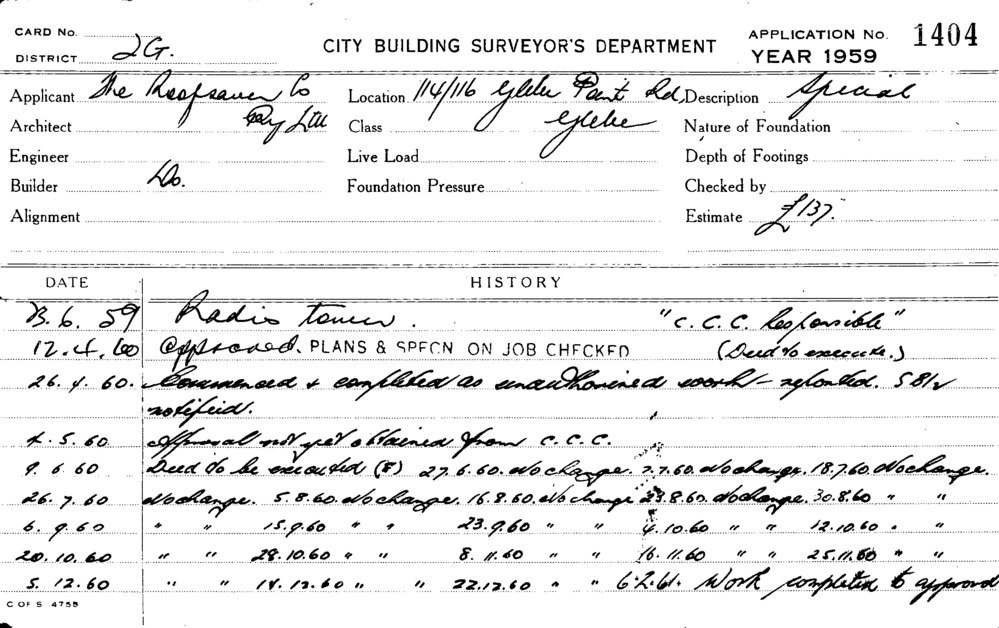 CARD No.
DISTRICT 2G.
CITY BUILDING SURVEYOR'S DEPARTMENT
APPLICATION No. 1404
YEAR 1959
Applicant The Roofsaver Co Location 114/116 Glebe Point Rd, Description Special
Architect Pty Ltd Class Glebe Nature of Foundation
Engineer Live Load Depth of Footings
Builder Do. Foundation Pressure Checked by
Alignment Estimate £137.
DATE HISTORY
23.6.59 Radio tower. "C.C.C. Responsible"
12.4.60 Approved. PLANS & SPECN ON JOB CHECKED (Deed to execute.)
26.4.60. Commenced & completed as unauthorised work - reported.
notified.
4.5.60 Approval not yet obtained from C.C.C.
9.6.60 Deed to be executed (8) 27.6.60. No change. 7.7.60. No change. 18.7.60. No change.
26.7.60 No change. 5.8.60. No change. 16.8.60. No change 23.8.60. No change. 30.8.60 " "
6.9.60 " " 15.9.60 " " 23.9.60 " " 4.10.60 " " 12.10.60 " "
20.10.60 " " 28.10.60 " " 8.11.60 " " 16.11.60 " " 25.11.60 " "
5.12.60 " " 14.12.60 " " 22.12.60 " " 6.2.61. Work completed to approval
C OF S 4755